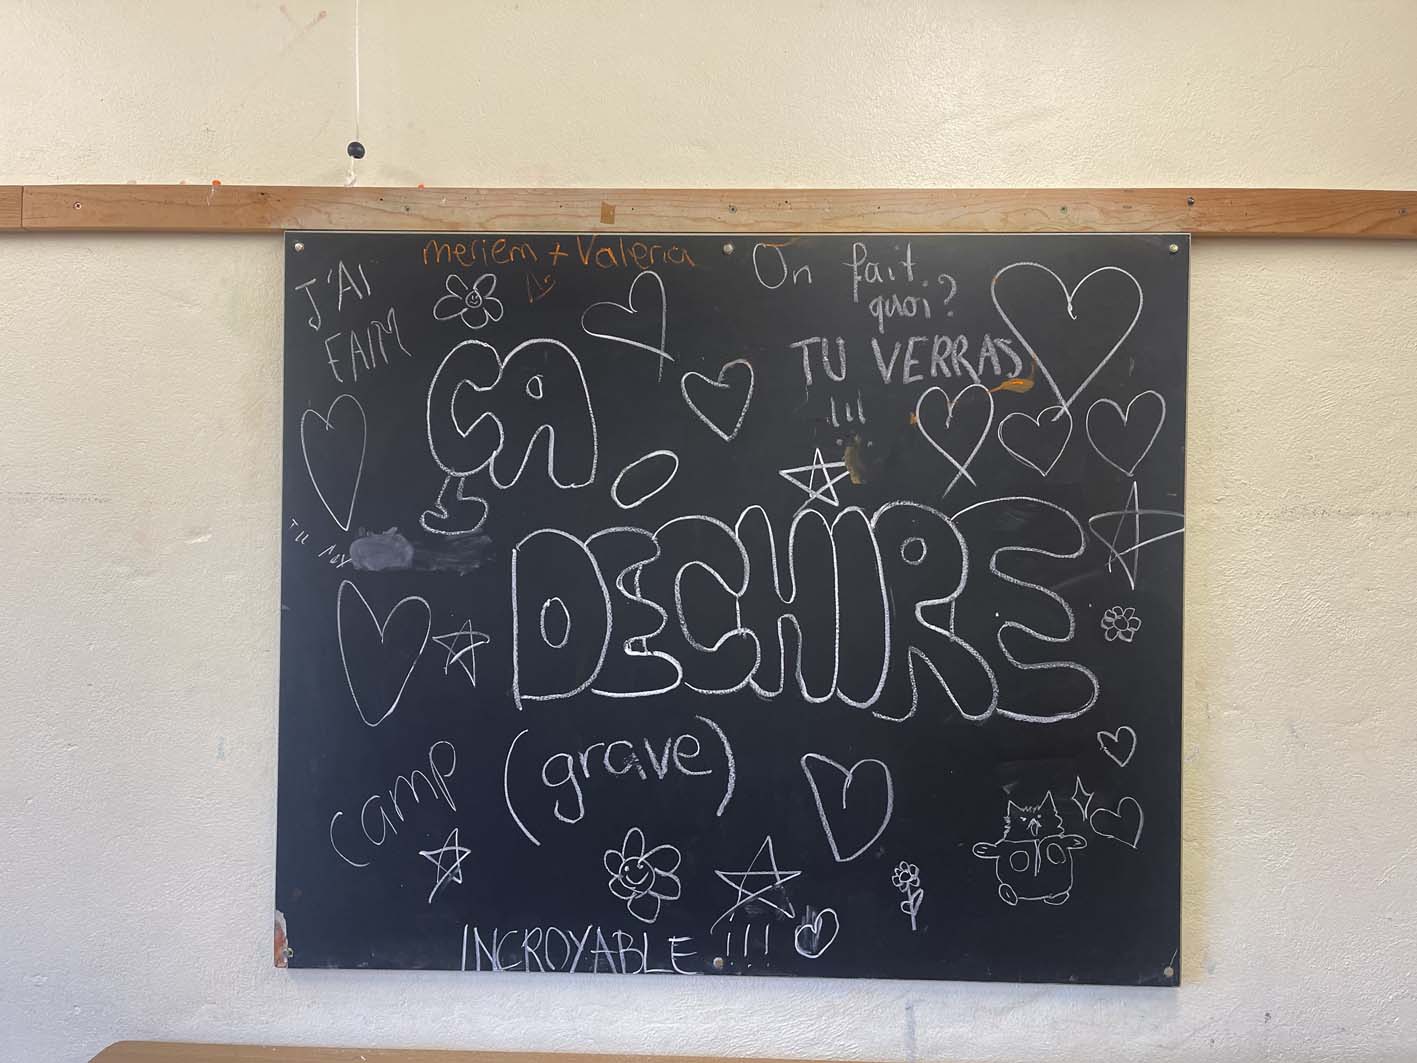 meriem + Valeria
J'AI
FAIM
On fait
quoi?
TU VERRAS
!!!
ÇA
DÉCHIRE
(grave)
camp
INCROYABLE !!!